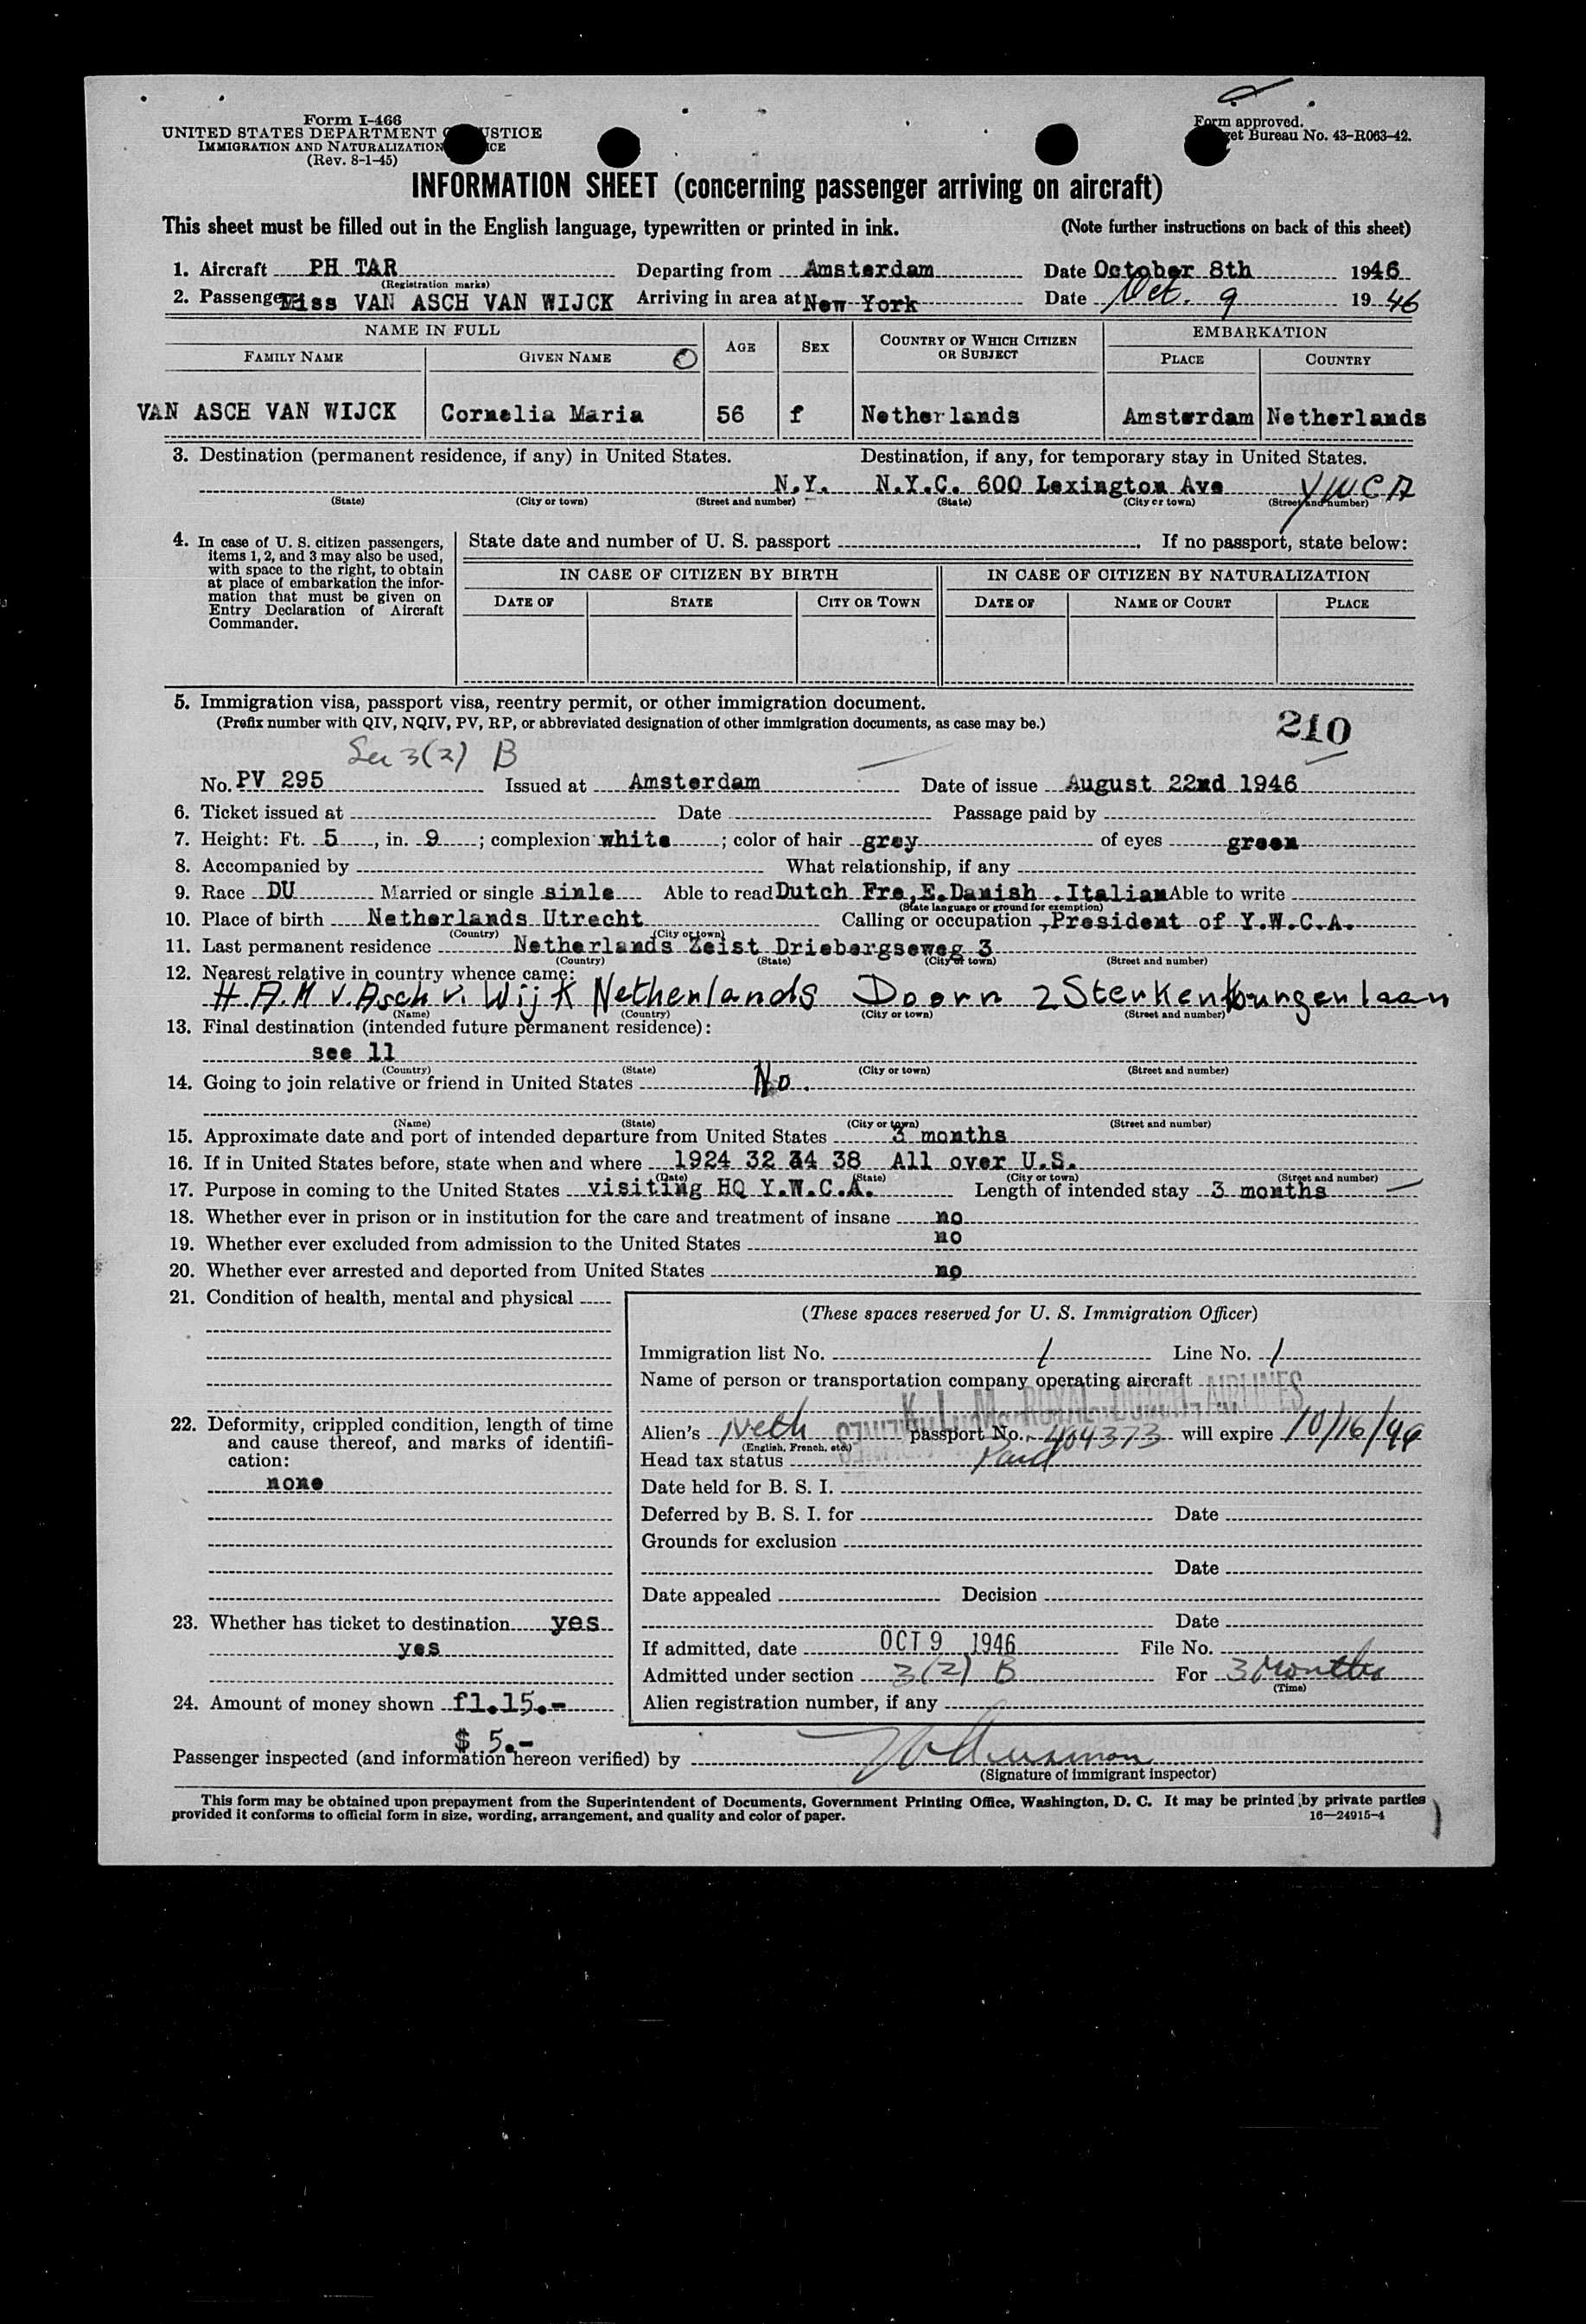 Form I-466
UNITED STATES DEPARTMENT JUSTICE
IMMIGRATION AND NATURALIZATION
(Rev. 8-1-45)
Form approved.
Bureau No. 43-R063-42.
INFORMATION SHEET (concerning passenger arriving on aircraft)
This sheet must be filled out in the English language, typewritten or printed in ink. (Note further instructions on back of this sheet)
1. Aircraft PH TAR Departing from Amsterdam Date October 8th 1946
(Registration marks)
2. Passenger Miss VAN ASCH VAN WIJCK Arriving in area at New York Date Oct. 9 1946
NAME IN FULL AGE SEX COUNTRY OF WHICH CITIZEN OR SUBJECT EMBARKATION
FAMILY NAME GIVEN NAME PLACE COUNTRY
VAN ASCH VAN WIJCK Cornelia Maria 56 f Netherlands Amsterdam Netherlands
3. Destination (permanent residence, if any) in United States. Destination, if any, for temporary stay in United States.
N.Y. N.Y.C. 600 Lexington Ave YWCA
(State) (City or town) (Street and number) (State) (City or town) (Street and number)
4. In case of U. S. citizen passengers, items 1, 2, and 3 may also be used, with space to the right, to obtain at place of embarkation the information that must be given on Entry Declaration of Aircraft Commander.
State date and number of U. S. passport If no passport, state below:
IN CASE OF CITIZEN BY BIRTH IN CASE OF CITIZEN BY NATURALIZATION
DATE OF STATE CITY OR TOWN DATE OF NAME OF COURT PLACE
5. Immigration visa, passport visa, reentry permit, or other immigration document.
(Prefix number with QIV, NQIV, PV, RP, or abbreviated designation of other immigration documents, as case may be.)
210
Sec 3(2) B
No. PV 295 Issued at Amsterdam Date of issue August 22nd 1946
6. Ticket issued at Date Passage paid by
7. Height: Ft. 5, in. 9; complexion white; color of hair grey of eyes green
8. Accompanied by What relationship, if any
9. Race DU Married or single sinle Able to read Dutch Fre,E.Danish .Italian Able to write
(State language or ground for exemption)
10. Place of birth Netherlands Utrecht Calling or occupation ,President of Y.W.C.A.
(Country) (City or town)
11. Last permanent residence Netherlands Zeist Driebergseweg 3
(Country) (State) (City or town) (Street and number)
12. Nearest relative in country whence came:
H.A.M v. Asch v. Wijk Netherlands Doorn 2 Sterkenburgerlaan
(Name) (Country) (City or town) (Street and number)
13. Final destination (intended future permanent residence):
see 11
(Country) (State) (City or town) (Street and number)
14. Going to join relative or friend in United States No.
(Name) (State) (City or town) (Street and number)
15. Approximate date and port of intended departure from United States 3 months
16. If in United States before, state when and where 1924 32 34 38 All over U.S.
(Date) (State) (City or town) (Street and number)
17. Purpose in coming to the United States visiting HQ Y.W.C.A. Length of intended stay 3 months
18. Whether ever in prison or in institution for the care and treatment of insane no
19. Whether ever excluded from admission to the United States no
20. Whether ever arrested and deported from United States no
21. Condition of health, mental and physical
22. Deformity, crippled condition, length of time and cause thereof, and marks of identification:
none
23. Whether has ticket to destination yes
yes
24. Amount of money shown fl.15.-
$ 5.-
(These spaces reserved for U. S. Immigration Officer)
Immigration list No. 1 Line No. 1
Name of person or transportation company operating aircraft
ROYAL DUTCH AIRLINES
Alien's Neth passport No. 404373 will expire 10/16/46
(English, French, etc.)
Head tax status Paid
Date held for B. S. I.
Deferred by B. S. I. for Date
Grounds for exclusion
Date
Date appealed Decision
Date
If admitted, date OCT 9 1946 File No.
Admitted under section 3(2) B For 3 Months
(Time)
Alien registration number, if any
Passenger inspected (and information hereon verified) by
(Signature of immigrant inspector)
This form may be obtained upon prepayment from the Superintendent of Documents, Government Printing Office, Washington, D. C. It may be printed by private parties
provided it conforms to official form in size, wording, arrangement, and quality and color of paper. 16—24915-4